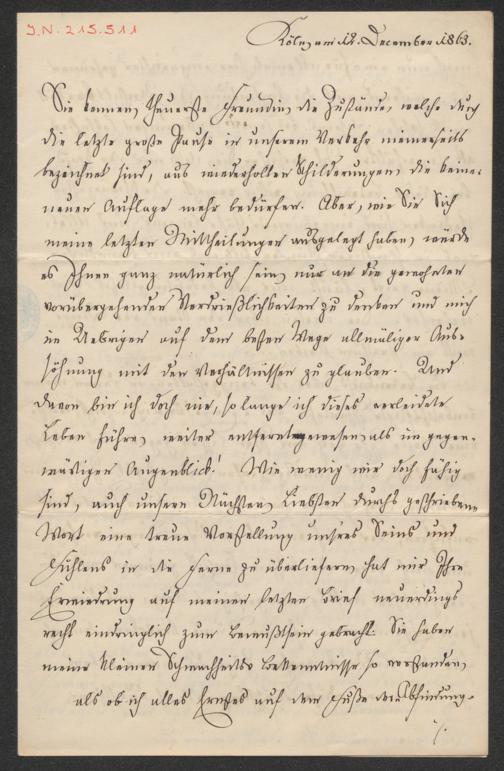 J.N. 215.511
Köln, am 12. December 1863.
Sie kennen, theuerste Freundin, die Zustände, welche durch
die letzte große Pause in unserem Verkehr meinerseits
bezeichnet sind, aus wiederholten Schilderungen, die keiner
neuen Auflage mehr bedürfen. Aber, wie Sie Sich
meine letzten Mittheilungen ausgelegt haben, würde
es Ihnen ganz natürlich sein, nur an die gewohnten
vorübergehenden Verdrießlichkeiten zu denken und mich
im Uebrigen auf dem besten Wege allmäliger Aus-
söhnung mit den Verhältnissen zu glauben. Und
davon bin ich doch nie, so lange ich dieses verleidete
Leben führe, weiter entfernt gewesen, als im gegen-
wärtigen Augenblick! Wie wenig wir doch fähig
sind, auch unsern Nächsten, Liebsten durch's geschriebene
Wort eine treue Vorstellung unsres Seins und
Fühlens in die Ferne zu überliefern, hat mir Ihre
Erwiedrung auf meinen letzten Brief neuerdings
recht eindringlich zum Bewußtsein gebracht. Sie haben
meine kleinen Schwachheits-Bekenntnisse so verstanden,
als ob ich alles Ernstes auf dem Fuße der Abfindung